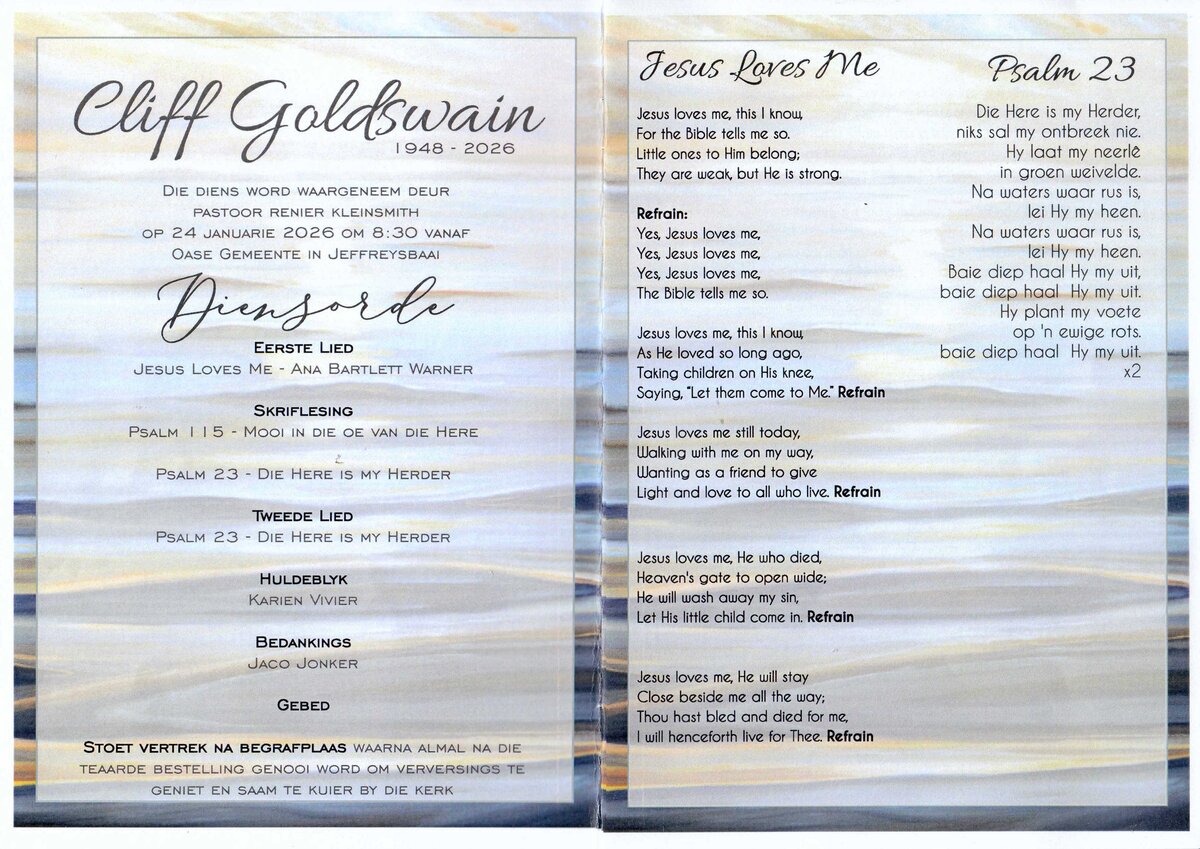 Cliff Goldswain
1948 - 2026
Die diens word waargeneem deur
pastoor Renier Kleinsmith
op 24 Januarie 2026 om 8:30 vanaf
Oase Gemeente in Jeffreysbaai
Diensorde
Eerste Lied
Jesus Loves Me - Ana Bartlett Warner
Skriflesing
Psalm 115 - Mooi in die oe van die Here
Psalm 23 - Die Here is my Herder
Tweede Lied
Psalm 23 - Die Here is my Herder
Huldeblyk
Karien Vivier
Bedankings
Jaco Jonker
Gebed
Stoet vertrek na begrafplaas waarna almal na die
teaarde bestelling genooi word om verversings te
geniet en saam te kuier by die kerk
Jesus Loves Me
Jesus loves me, this I know,
For the Bible tells me so.
Little ones to Him belong;
They are weak, but He is strong.
Refrain:
Yes, Jesus loves me,
Yes, Jesus loves me,
Yes, Jesus loves me,
The Bible tells me so.
Jesus loves me, this I know,
As He loved so long ago,
Taking children on His knee,
Saying, "Let them come to Me." Refrain
Jesus loves me still today,
Walking with me on my way,
Wanting as a friend to give
Light and love to all who live. Refrain
Jesus loves me, He who died,
Heaven's gate to open wide;
He will wash away my sin,
Let His little child come in. Refrain
Jesus loves me, He will stay
Close beside me all the way;
Thou hast bled and died for me,
I will henceforth live for Thee. Refrain
Psalm 23
Die Here is my Herder,
niks sal my ontbreek nie.
Hy laat my neerlê
in groen weivelde.
Na waters waar rus is,
lei Hy my heen.
Na waters waar rus is,
lei Hy my heen.
Baie diep haal Hy my uit,
baie diep haal Hy my uit.
Hy plant my voete
op 'n ewige rots.
baie diep haal Hy my uit.
x2